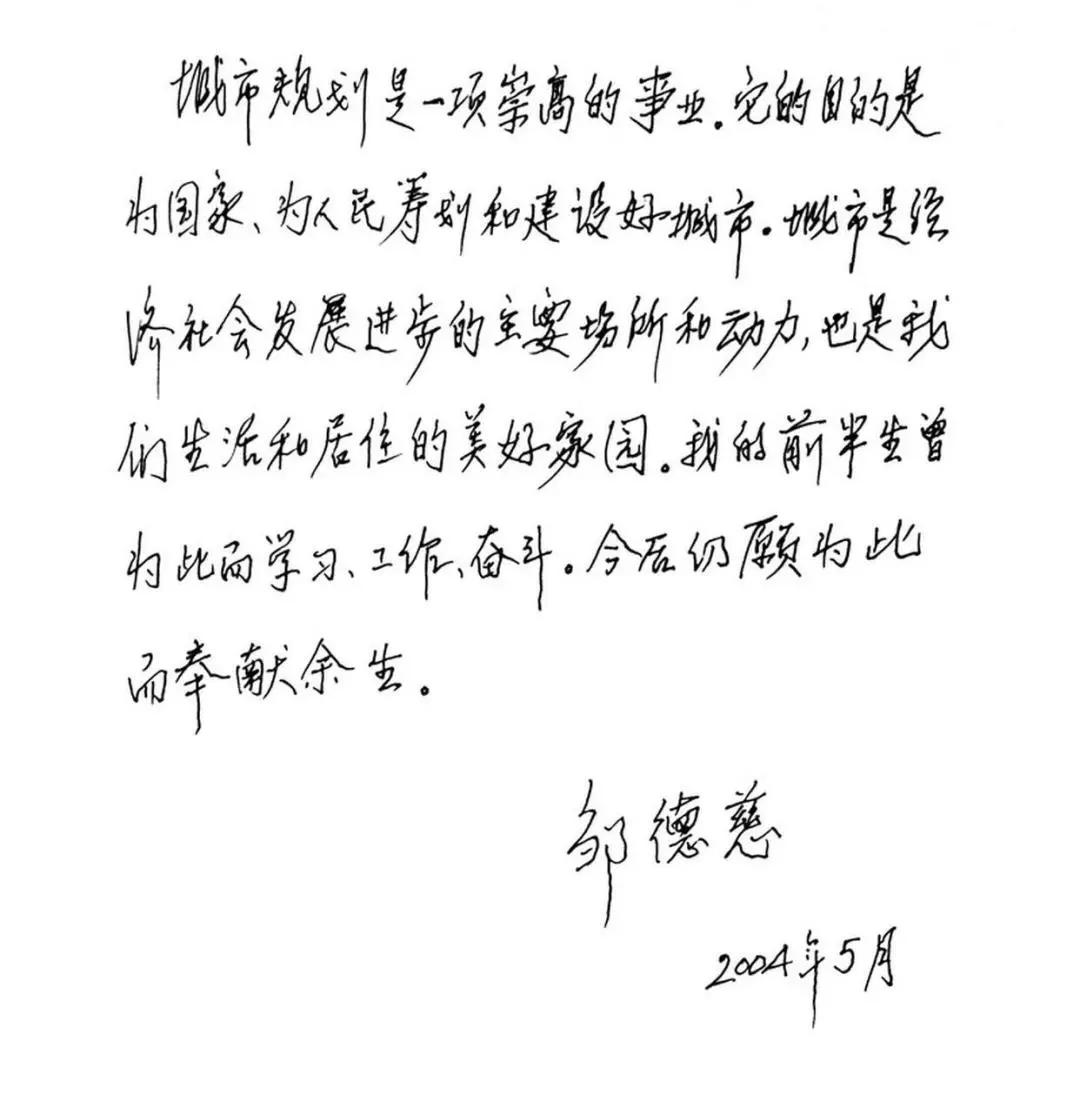 城市规划是一项崇高的事业。它的目的是
为国家、为人民筹划和建设好城市。城市是经
济社会发展进步的主要场所和动力,也是我
们生活和居住的美好家园。我的前半生曾
为此而学习、工作、奋斗。今后仍愿为此
而奉献余生。
邹德慈
2004年5月